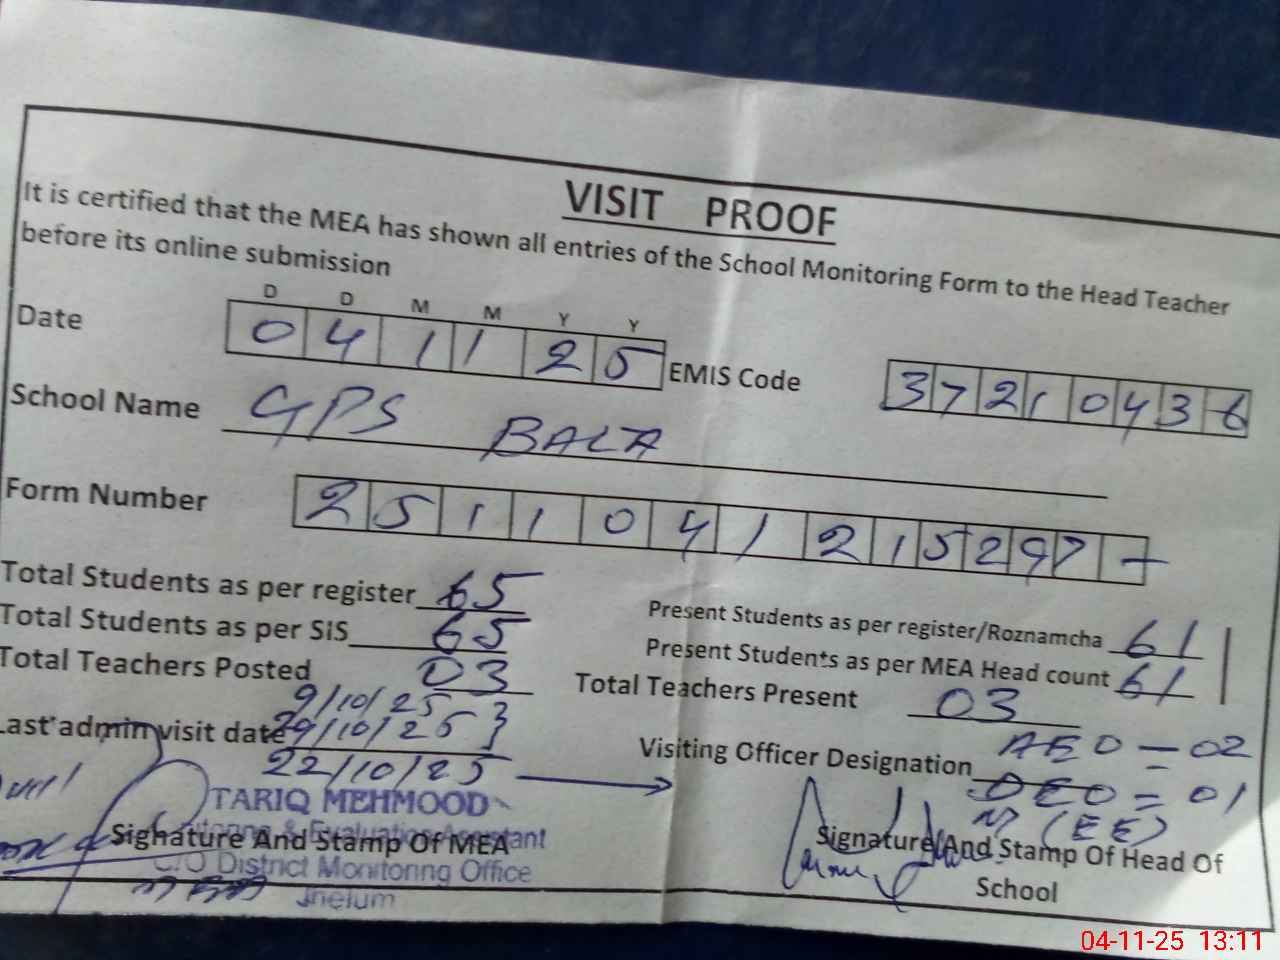 VISIT PROOF
It is certified that the MEA has shown all entries of the School Monitoring Form to the Head Teacher
before its online submission
D D M M Y Y
Date 0 4 1 1 2 5 EMIS Code 3 7 2 1 0 4 3 6
School Name GPS BALA
Form Number 2 5 1 1 0 4 1 2 1 5 2 9 7 +
Total Students as per register 65 Present Students as per register/Roznamcha 61
Total Students as per SIS 65 Present Students as per MEA Head count 61
Total Teachers Posted 03 Total Teachers Present 03
9/10/25
Last admin visit date 29/10/25 } Visiting Officer Designation AEO = 02
22/10/25 → DEO = 01
(EE)
TARIQ MEHMOOD
Monitoring & Evaluation Assistant
Signature And Stamp Of MEA Signature And Stamp Of Head Of
School
C/O District Monitoring Office
Jhelum
04-11-25 13:11